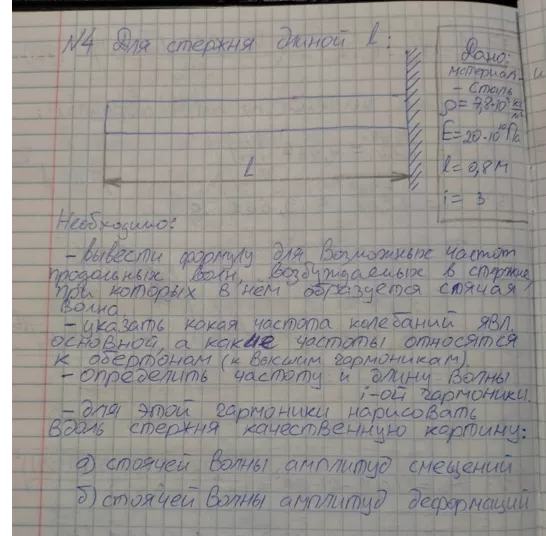 N4 Для стержня длиной l:
Дано:
материал -
- сталь
ρ=7,8·10³ кг/м³
E=20·10¹⁰Па
l=0,8м
i=3
l
Необходимо:
- вывести формулу для возможных частот
продольных волн, возбуждаемых в стержне,
при которых в нём образуется стоячая
волна.
- указать какая частота колебаний явл.
основной, а какие частоты относятся
к обертонам (к высшим гармоникам)
- определить частоту и длину волны
i-ой гармоники.
- для этой гармоники нарисовать
вдоль стержня качественную картину:
а) стоячей волны амплитуд смещений
б) стоячей волны амплитуд деформаций